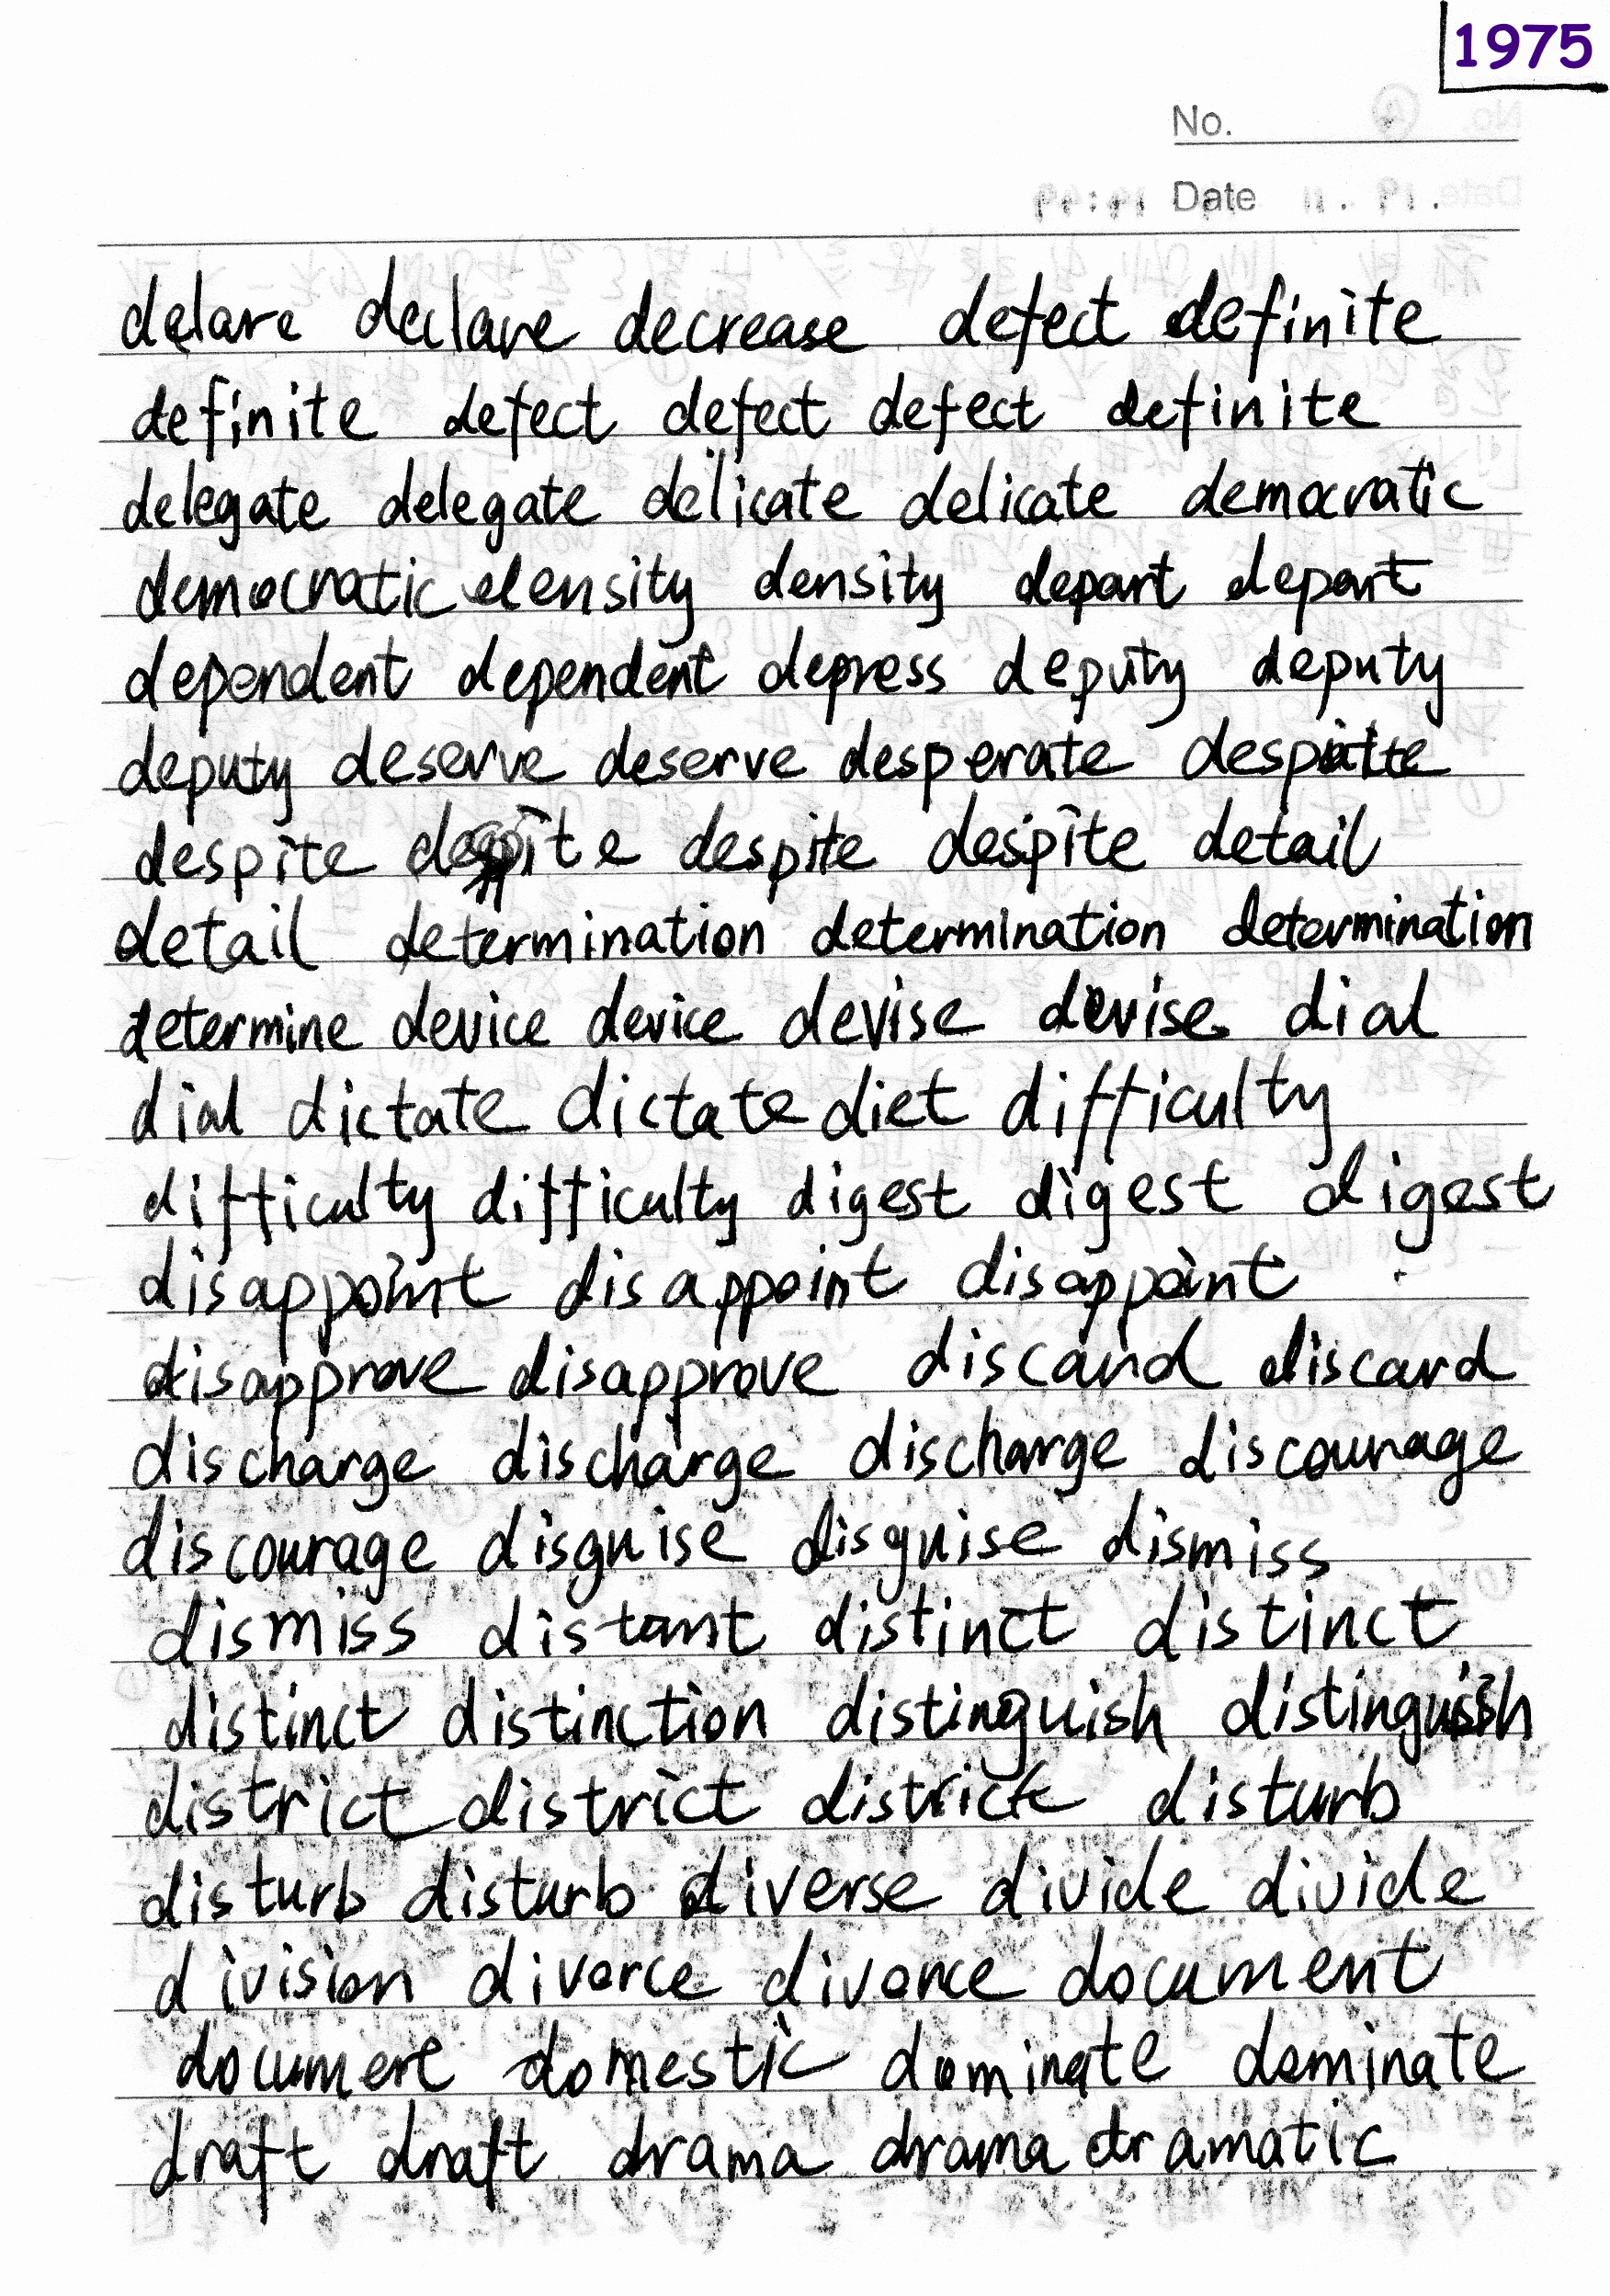 1975
No.
Date
delare declare decrease defect definite
definite defect defect defect definite
delegate delegate delicate delicate democratic
democratic density density depart depart
dependent dependent depress deputy deputy
deputy deserve deserve desperate despite
despite despite despite despite detail
detail determination determination determination
determine device device devise devise dial
dial dictate dictate diet difficulty
difficulty difficulty digest digest digest
disappoint disappoint disappoint
disapprove disapprove discard discard
discharge discharge discharge discourage
discourage disguise disguise dismiss
dismiss distant distinct distinct
distinct distinction distinguish distinguish
district district district disturb
disturb disturb diverse divide divide
division divorce divorce document
document domestic dominate dominate
draft draft drama drama dramatic